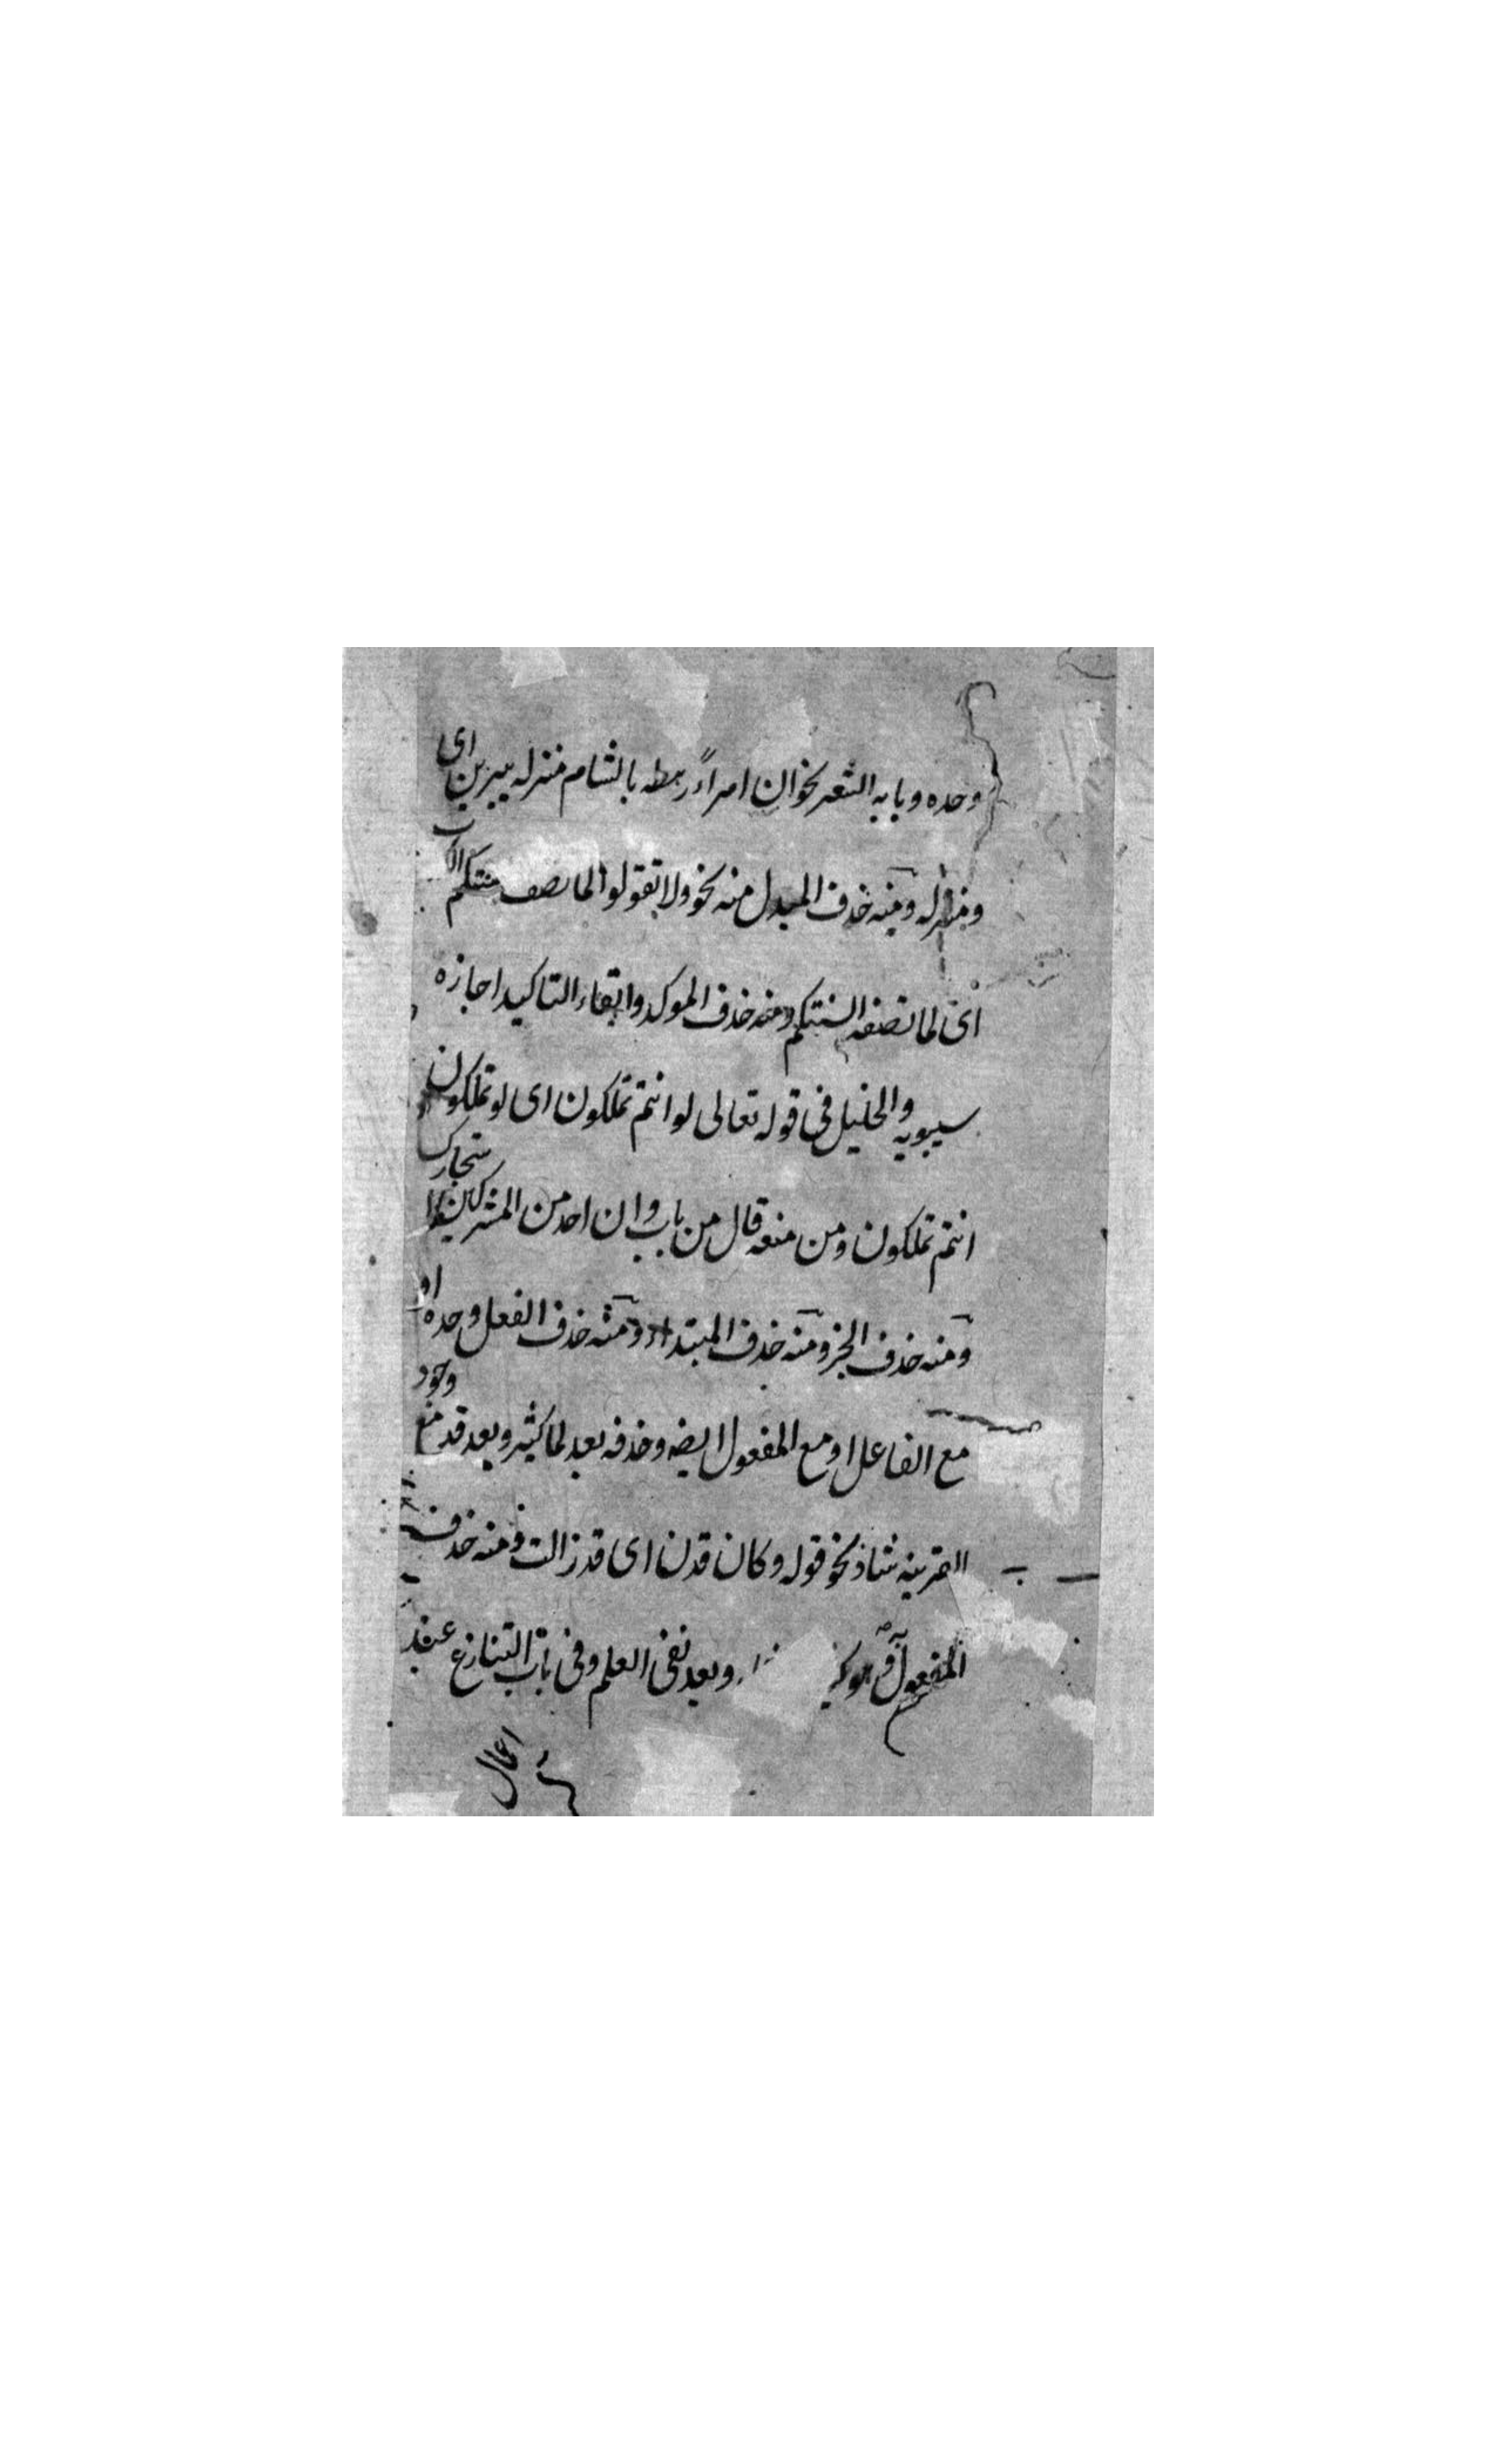 وحده وبابه الشعر نحو ان امراً رهطه بالشام منزله ببيرين اى
ومنزله ومنه حذف المبدل منه نحو ولا تقولوا لما تصف السنتكم الكذب
اى لما تصفه السنتكم ومنه حذف الموكد وابقاء التاكيد اجازه
سيبويه والخليل فى قوله تعالى لو انتم تملكون اى لو تملكون
انتم تملكون ومن منعه قال من باب وان احد من المشركين استجارك
ومنه حذف الخبر ومنه حذف المبتداء ومنه حذف الفعل وحده او
مع الفاعل او مع المفعول ايضه وحذفه بعد لما كثير وبعد قد مع وجود
القرينه شاذ نحو قوله وكان قدن اى قد زالت ومنه حذف
المفعول وهو كثير وبعد نفى العلم وفى باب التنازع عند
اعمال